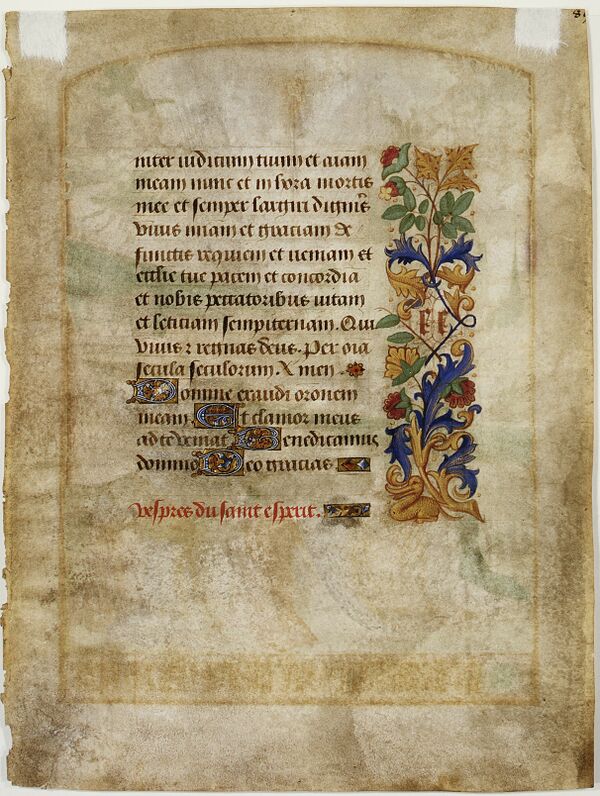 niter iudicium tuum et aiam
meam nunc et in hora mortis
mee et semper largiri digneris
viuis miam et graciam de
functis requiem et ueniam et
ecclie tue pacem et concordia
et nobis peccatoribus uitam
et leticiam sempiternam. Qui
viuis ⁊ regnas deus. Per oia
secula seculorum. Amen
Domine exaudi oronem
meam. Et clamor meus
ad te veniat. Benedicamus
domino Deo gracias
Vespres du saint esperit.